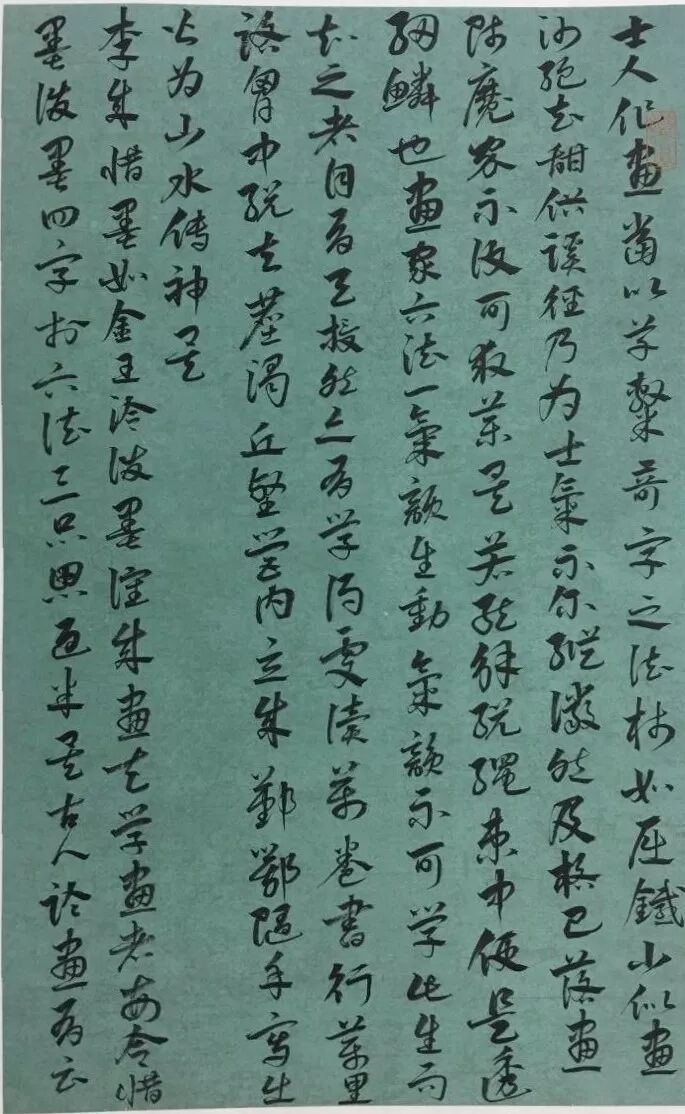 士人作畫當以草隸奇字之法樹如屈鐵山似畫
沙絕去甜俗蹊徑乃为士氣不尔縱儼然及格已落畫
師魔界不復可救藥矣若能解脫繩束中便是透
網鱗也畫家六法一氣韻生動氣韻不可學此生而
知之者自有天授然亦有學得處讀萬卷書行萬里
路胸中脫去塵濁丘壑營內立成鄞鄂隨手寫出
皆为山水傳神矣
李成惜墨如金王洽潑墨瀋成畫夫學畫者每念惜
墨潑墨四字於六法三品思過半矣古人論畫有云